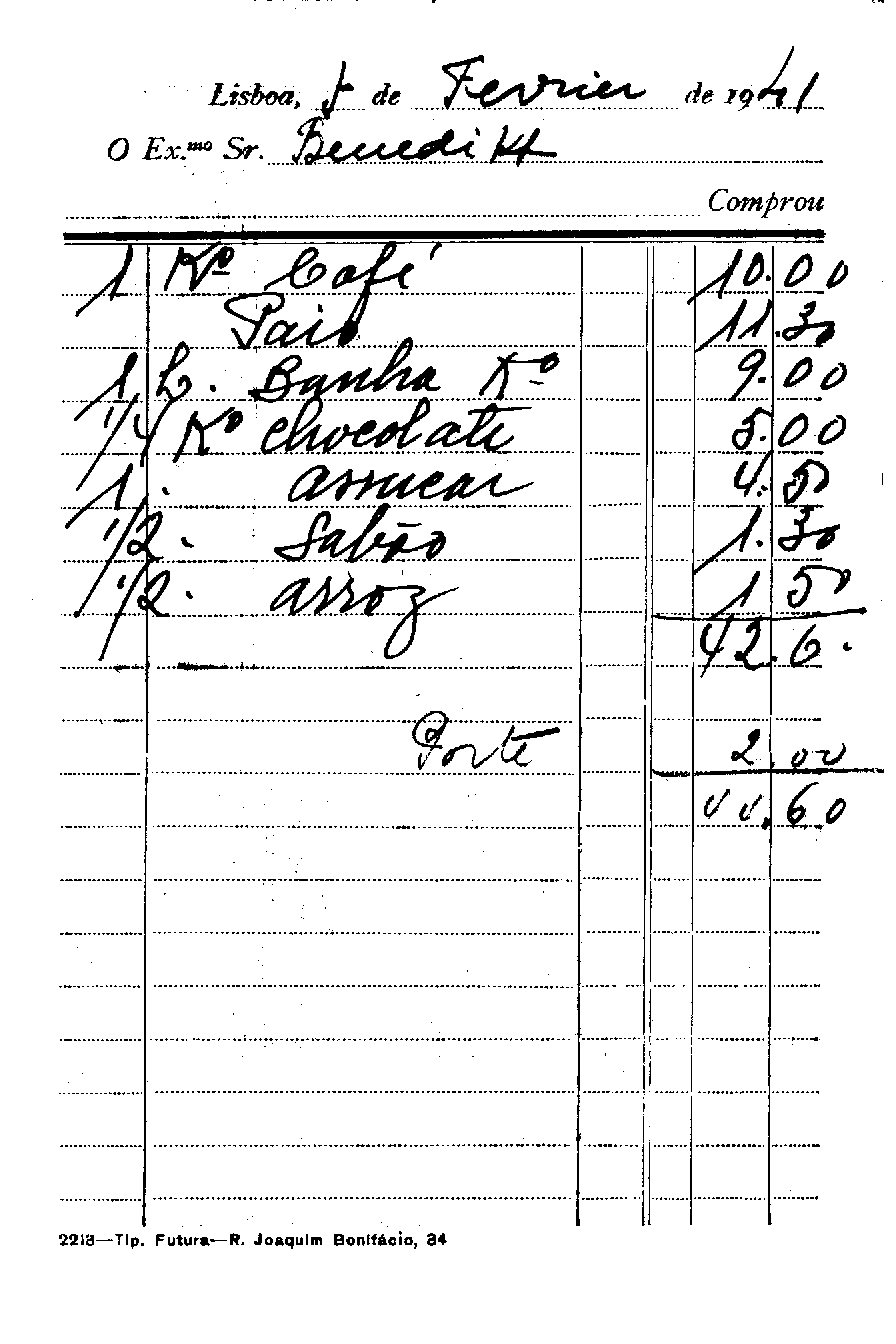 Lisboa, 5 de Fevrier de 1941
O Ex.mo Sr. Benedikt
Comprou
1 Kº Café 10.00
Paio 11.30
1 L. Banha Kº 9.00
1/4 Kº chocolate 5.00
1 . assucar 4.50
1/2 . Sabão 1.30
1/2 . arroz 1 50
42.6.
Porte 2.00
44.60
2213—Tip. Futura—R. Joaquim Bonifácio, 34